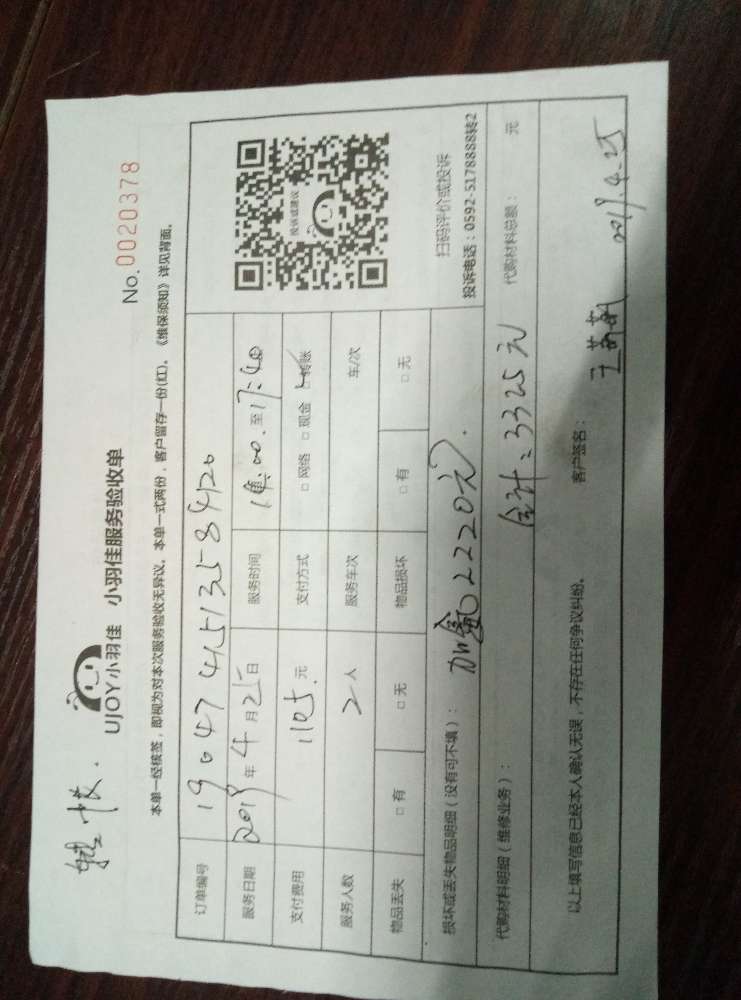 No.0020378
UJOY小羽佳 小羽佳服务验收单
本单一经核签，即视为对本次服务验收无异议。本单一式两份，客户留存一份(红)。《维保须知》详见背面。
订单编号 190474513584120
服务日期 2019年4月25日 服务时间 14:00.至17:40
支付费用 1105.元 支付方式 □网络 □现金 □转账
服务人数 2人 服务车次 车/次
物品丢失 □有 □无 物品损坏 □有 □无
投诉或建议
扫码评价或投诉
投诉电话：0592-5178888转2
损坏或丢失物品明细（没有可不填）： 加氟2220元.
代购材料明细（维修业务）： 合计：3325元 代购材料总额： 元
以上填写信息已经本人确认无误，不存在任何争议纠纷。 客户签名： 2019.4.25